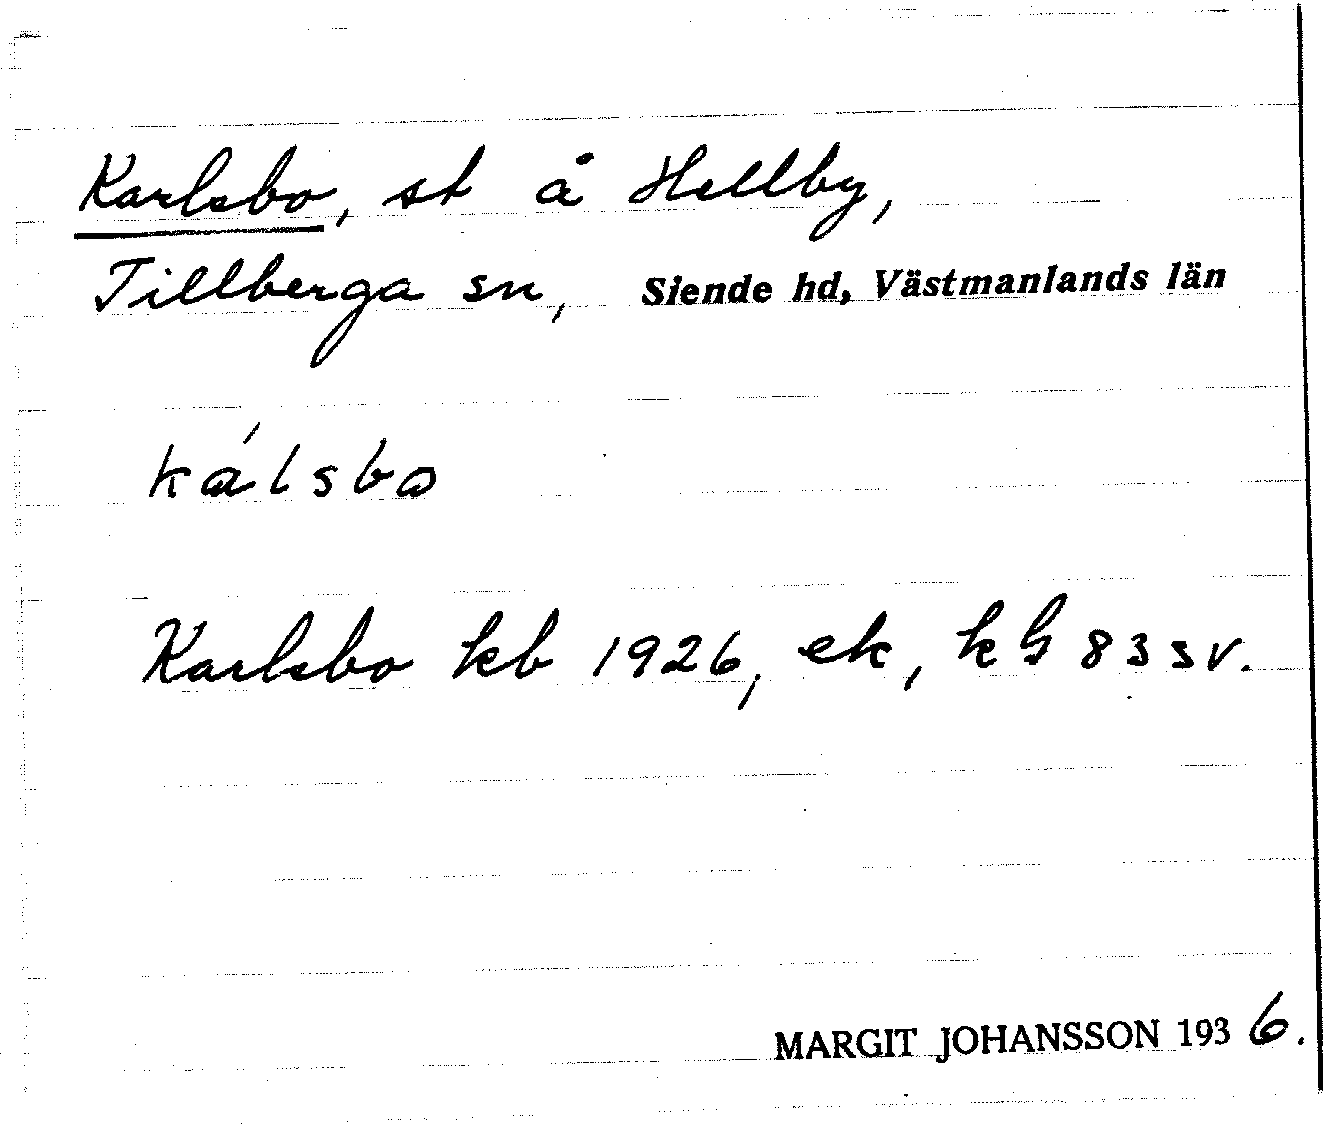 Karlsbo, st å Hellby,
Tillberga sn, Siende hd, Västmanlands län
kálsbo
Karlsbo kb 1926, ek, kb 83 sv.
MARGIT JOHANSSON 1936.